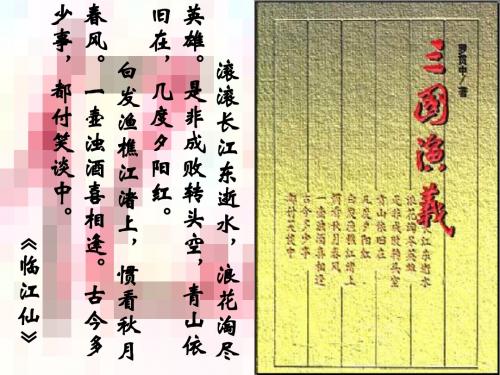 滚滚长江东逝水，浪花淘尽
英雄。是非成败转头空，青山依
旧在，几度夕阳红。
白发渔樵江渚上，惯看秋月
春风。一壶浊酒喜相逢。古今多
少事，都付笑谈中。
《临江仙》
罗贯中/著
三國演義
江东逝水
浪花淘尽英雄
是非成败转头空
青山依旧在
几度夕阳红
白发渔樵江渚上
惯看秋月春风
一壶浊酒喜相逢
古今多少事
都付笑谈中